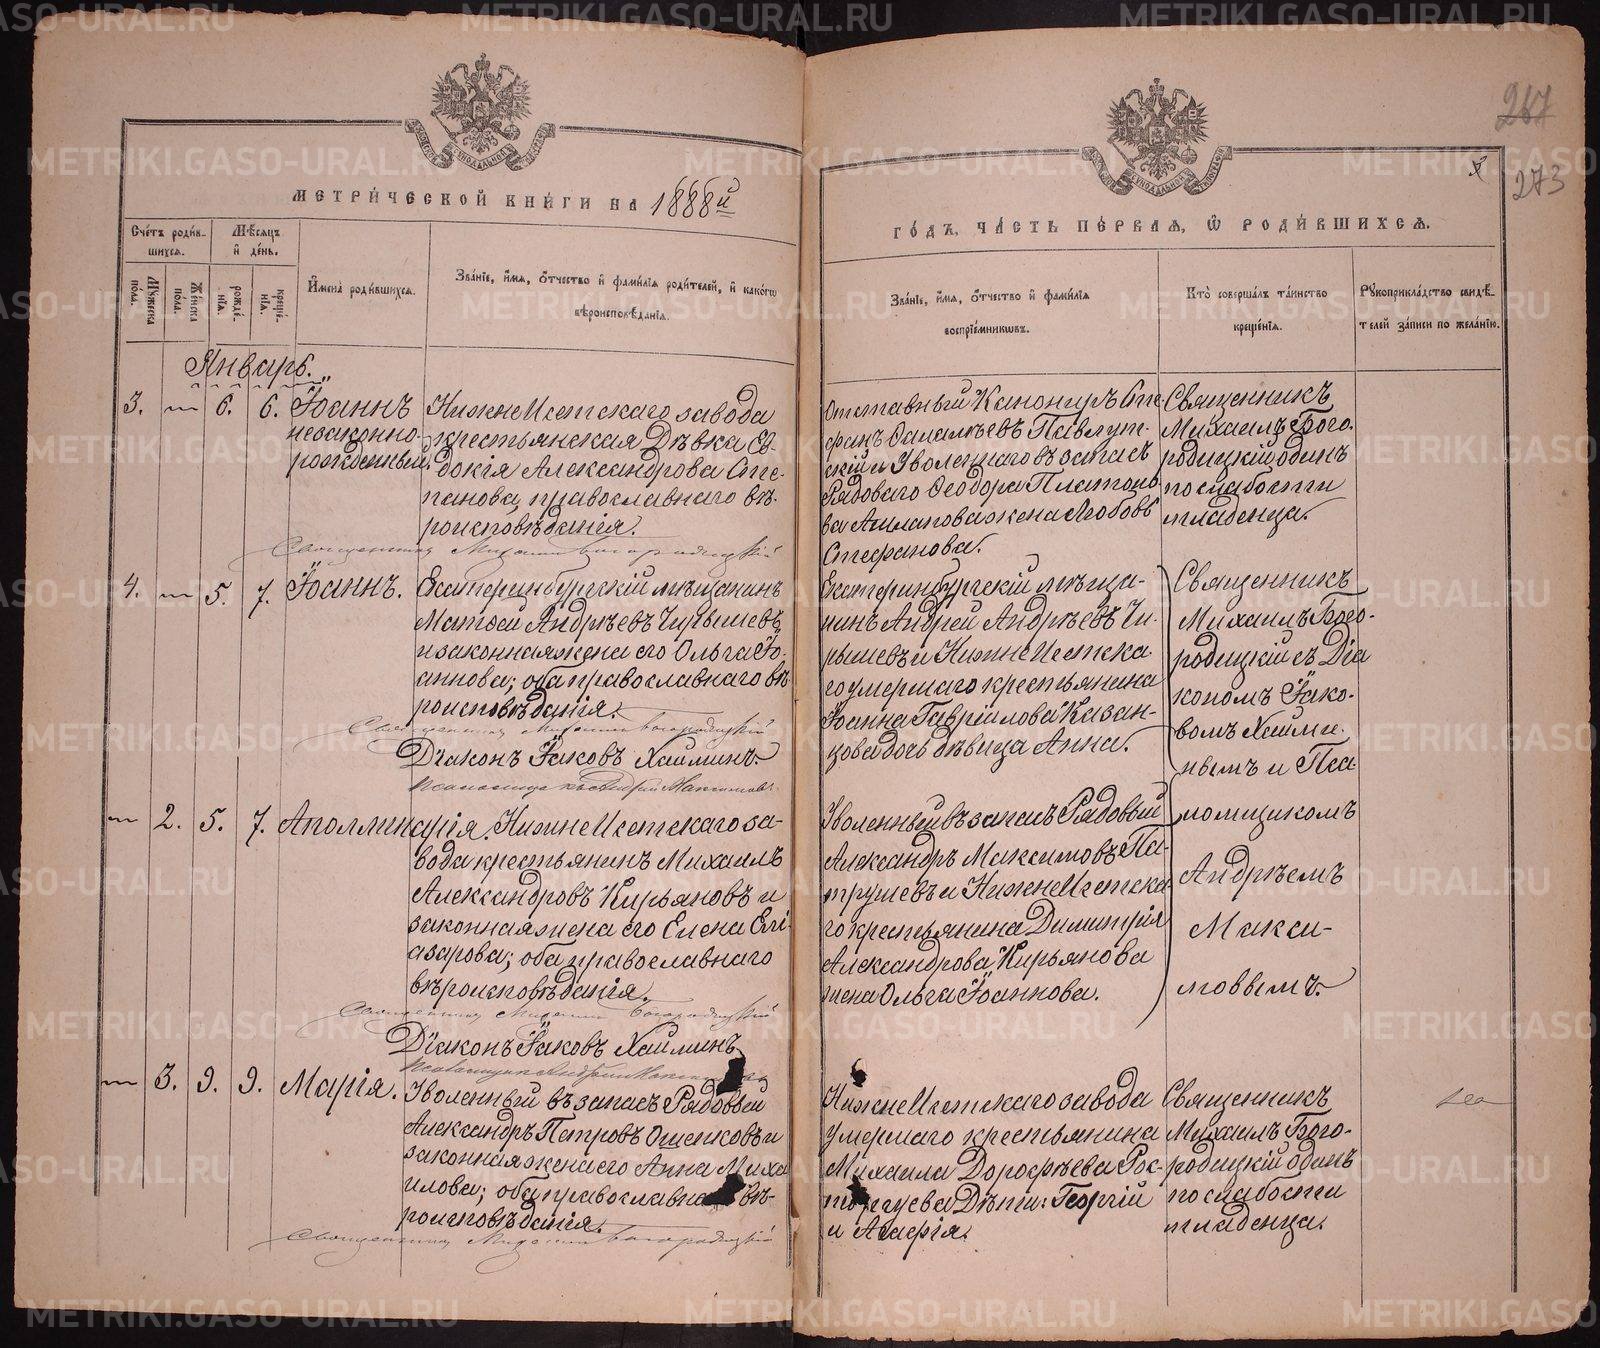 267
273
МЕТРИ́ЧЕСКОЙ КНИ́ГИ НА 1888й
ГО́ДЪ, ЧА́СТЬ ПЕ́РВАѦ, Ѿ РОДИ́ВШИХСѦ.
Сче́тъ роди́в-
шихсѧ.
Мѣсѧцъ
и́ де́нь.
Мꙋжеска
по́ла.
Же́нска
по́ла.
рожде́-
нїѧ.
креще́-
нїѧ.
И́мена̀ роди́вшихсѧ.
Зва́нїе, и́мѧ, о́тчество и́ фами́лїѧ роди́телей, и́ како́гѡ
вѣроисповѣ́данїѧ.
Зва́нїе, и́мѧ, о́тчество и́ фами́лїѧ
воспрїе́мникѡвъ.
Кто̀ соверша́лъ та́инство
креще́нїѧ.
Рꙋкоприкла́дство свидѣ́-
телей за́писи по жела́нїю.
Январь.
3. — 6. 6. Іоаннъ
незаконно-
рожденный.
НижнеИсетскаго завода
крестьянская Дѣвка Ев-
докія Александрова Сте-
панова, православнаго вѣ-
роисповѣданія.
Священник Михаил Богородицкій
Отставный Канониръ Сте-
фанъ Савватѣевъ Павлут-
скій и Уволеннаго въ запасъ
Рядоваго Ѳеодора Платоно-
ва жена Любовь
Стефанова.
Священникъ
Михаилъ Бого-
родицкій одинъ
по слабости
младенца.
4. — 5. 7. Іоаннъ.
Екатеринбургскій мѣщанинъ
Матѳей Андрѣевъ Чирышевъ
и законная жена его Ольга Іо-
аннова; оба православнаго вѣ-
роисповѣданія.
Священник Михаил Богородицкій
Діаконъ Іаковъ Хайминъ.
Псаломщикъ Андрей Максимовъ.
Екатеринбургскій мѣща-
нинъ Андрей Андрѣевъ Чи-
рышевъ и НижнеИсетска-
го умершаго крестьянина
Іоанна Гавріилова Казан-
цова дочь дѣвица Анна.
Священникъ
Михаилъ Бого-
родицкій съ Діа
кономъ Іако-
вомъ Хайми-
нымъ и Пса-
ломщикомъ
Андрѣемъ
Макси-
мовымъ.
— 2. 5. 7. Аполлинарія.
НижнеИсетскаго за-
вода крестьянинъ Михаилъ
Александровъ Кирьяновъ и
законная жена его Елена Елі-
азарова; оба православнаго
вѣроисповѣданія.
Священник Михаил Богородицкій
Діаконъ Іаковъ Хайминъ
Псаломщик Андрей
Уволенный въ запасъ Рядовый
Александръ Максимовъ Па-
трушевъ и НижнеИсетска-
го крестьянина Димитрія
Александрова Кирьянова
жена Ольга Іоаннова.
— 3. 9. 9. Марія.
Уволенный въ запасъ Рядовый
Александръ Петровъ Ошепковъ и
законная жена его Анна Миха
илова; оба православна вѣ-
роисповѣданія.
Священник Михаил Богородицкій
НижнеИсетскаго завода
умершаго крестьянина
Михаила Дороѳѣева Рос-
торгуева Дѣти: Георгій
и Агафія.
Священникъ
Михаилъ Бого-
родицкій одинъ
по слабости
младенца.
METRIKI.GASO-URAL.RU